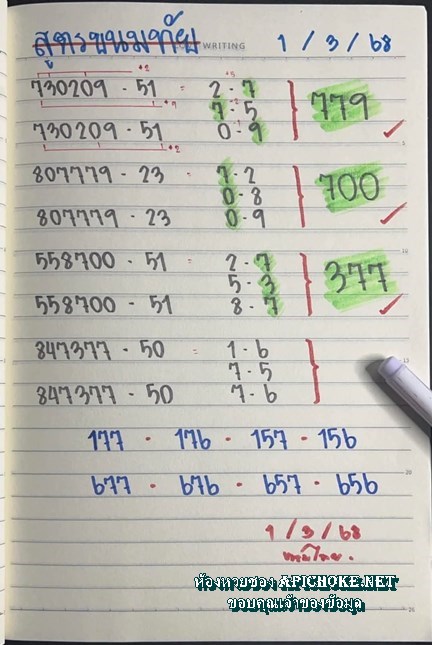 สูตรขนมทัย WRITING 1 / 3 / 68
730209 - 51 = 2 - 7
7 - 5 779
730209 - 51 0 - 9
807779 - 23 7 - 2
0 - 8 700
807779 - 23 0 - 9
558700 - 51 = 2 - 7
5 - 3 377
558700 - 51 8 - 7
847377 - 50 = 1 - 6
7 - 5
847377 - 50 7 - 6
177 - 176 - 157 - 156
677 - 676 - 657 - 656
1 / 3 / 68
ห้องหวยซอง APICHOKE.NET
ขอบคุณเจ้าของข้อมูล